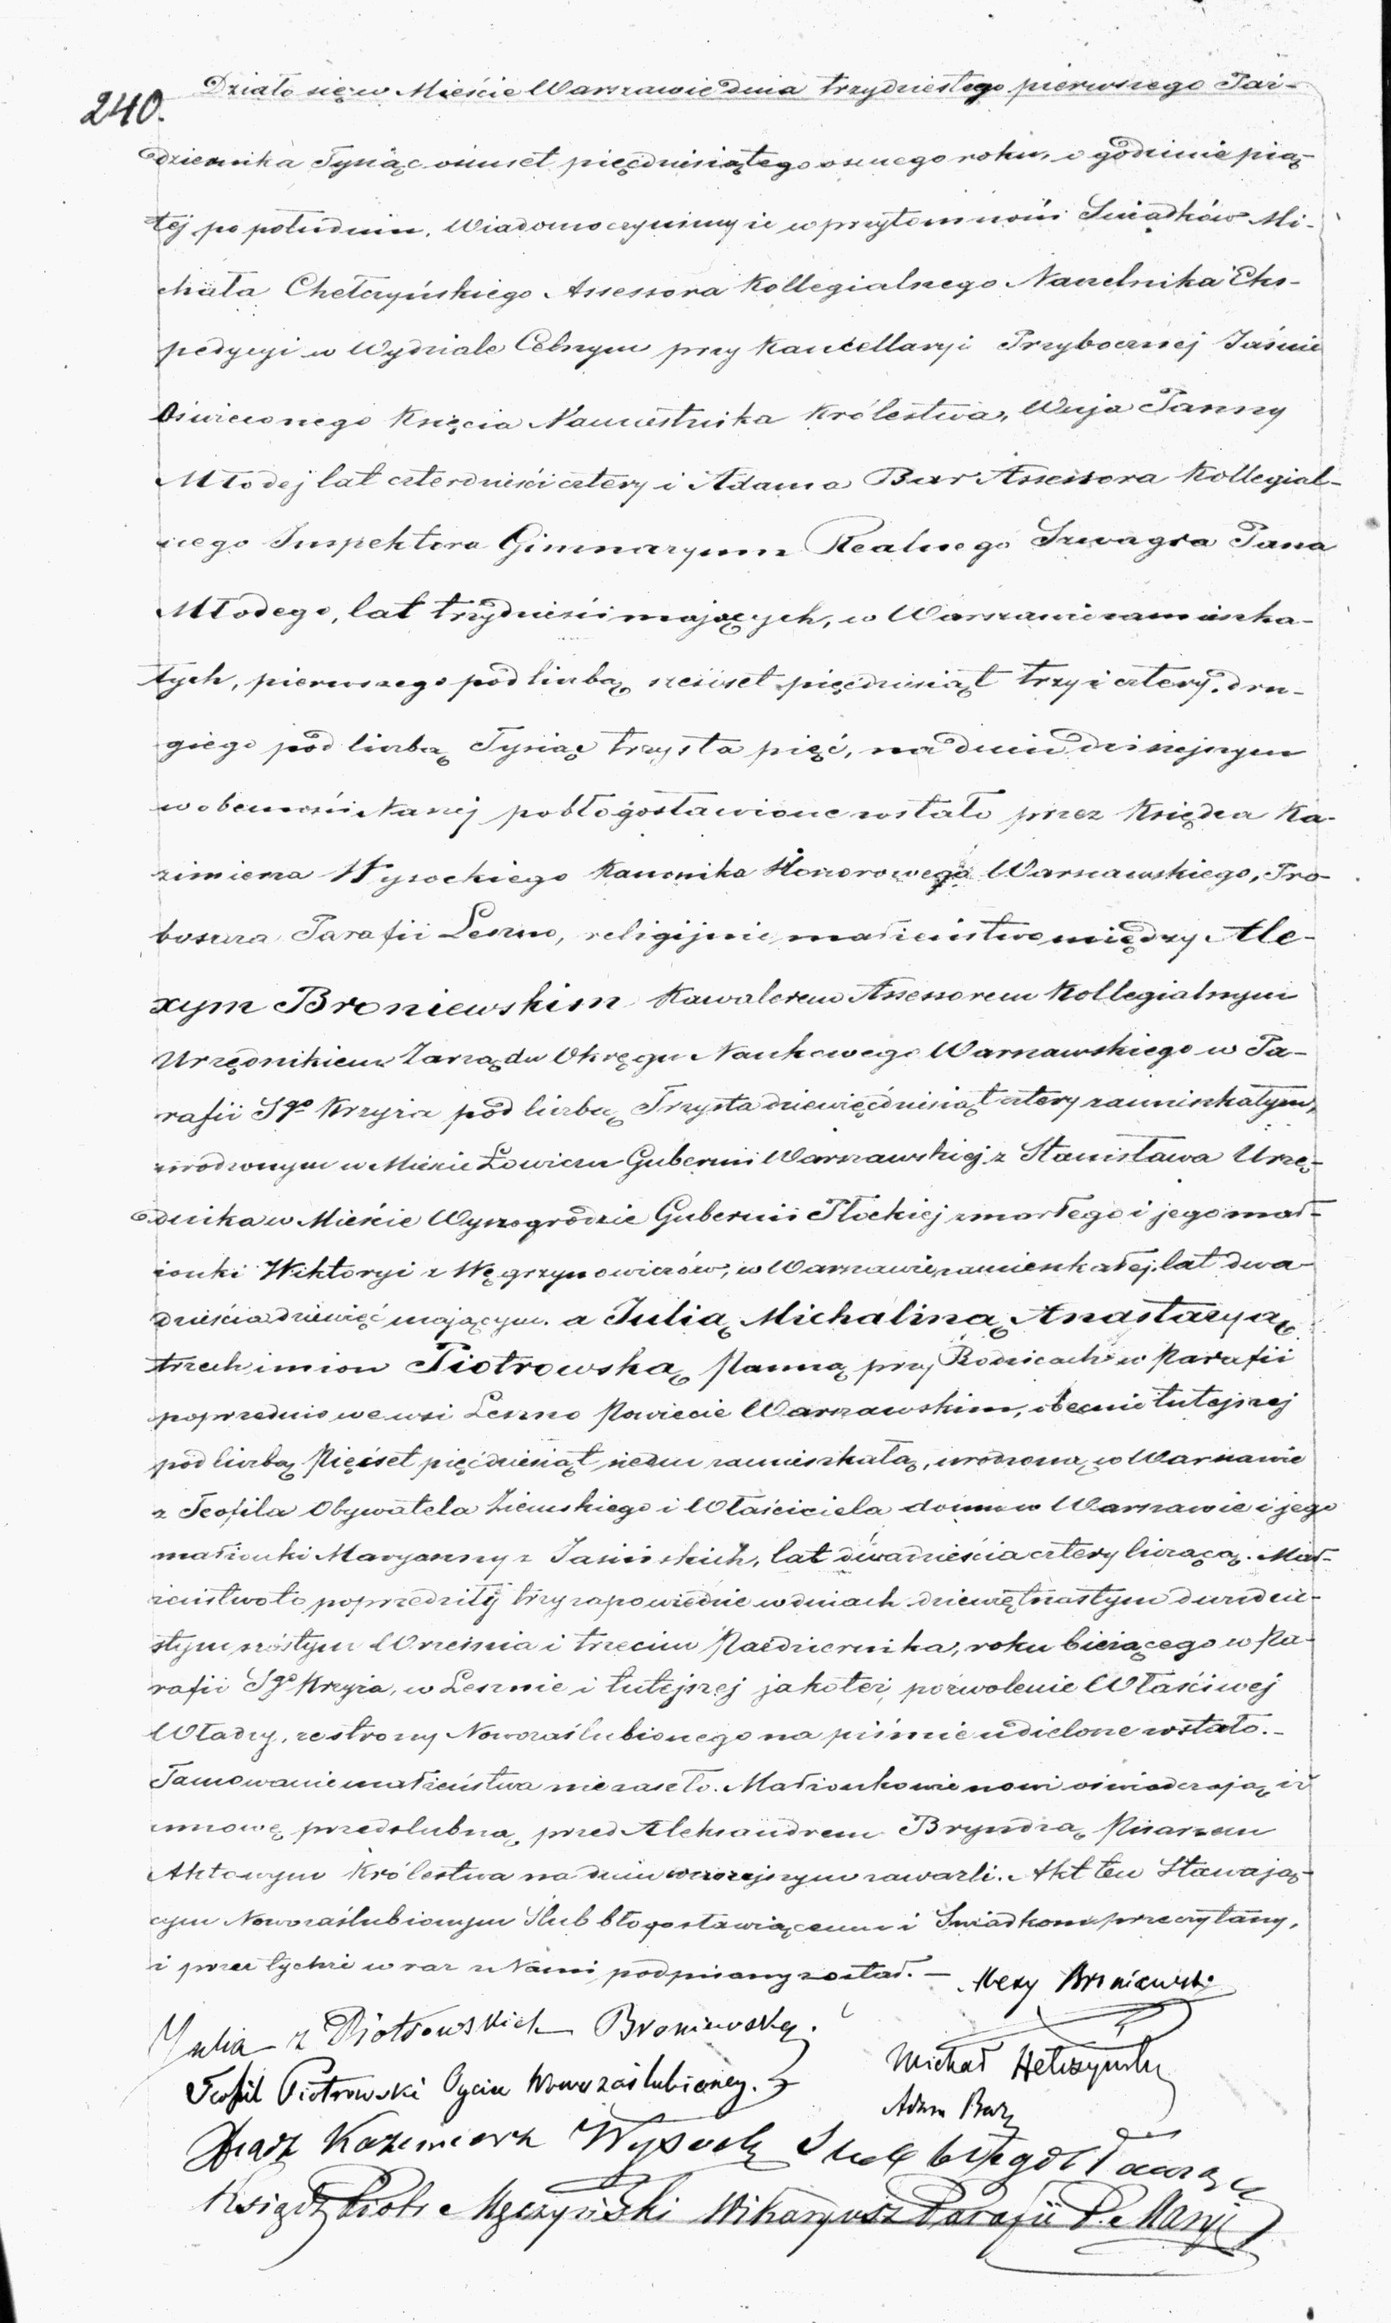 240.
Działo się w Mieście Warszawie dnia trzydziestego pierwszego Paź-
dziernika Tysiąc ośmset pięćdziesiątego osmego roku, o godzinie pią-
tej po południu. Wiadomo czynimy iż w przytomności Świadków Mi-
chała Chełczyńskiego Assessora Kollegialnego Naczelnika Eks-
pedycyi w Wydziale Celnym przy Kancellaryi Przybocznej Jaśnie
Oświeconego Księcia Namiestnika Królestwa, Wuja Panny
Młodej lat czterdzieści cztery i Adama Bar Assessora Kollegial-
nego Inspektora Gimnazyum Realnego Szwagra Pana
Młodego, lat trzydzieści mających, w Warszawie zamieszka-
łych, pierwszego pod liczbą sześćset pięćdziesiąt trzy i cztery, dru-
giego pod liczbą Tysiąc trzysta pięć, na dniu dzisiejszym
w obecności Naszej pobłogosławione zostało przez Księdza Ka-
zimierza Wysockiego Kanonika Honorowego Warszawskiego, Pro-
boszcza Parafii Leszno, religijnie małżeństwo między Ale-
xym Broniewskim Kawalerem Assessorem Kollegialnym
Urzędnikiem Zarządu Okręgu Naukowego Warszawskiego w Pa-
rafii Sgo Krzyża pod liczbą Trzysta dziewięćdziesiąt cztery zamieszkałym,
urodzonym w Mieście Łowiczu Gubernii Warszawskiej z Stanisława Urzę-
dnika w Mieście Wyszogrodzie Gubernii Płockiej zmarłego i jego mał-
żonki Wiktoryi z Węgrzynowiczów, w Warszawie zamieszkałej, lat dwa-
dzieścia dziewięć mającym. a Julią Michaliną Anastazyą
trzech imion Piotrowską Panną przy Rodzicach w Parafii
poprzednio we wsi Leszno Powiecie Warszawskim, obecnie tutejszej
pod liczbą Pięćset pięćdziesiąt siedm zamieszkałą, urodzoną w Warszawie
z Teofila Obywatela Ziemskiego i Właściciela domu w Warszawie i jego
małżonki Maryanny z Jasińskich, lat dwadzieścia cztery liczącą. Mał-
żeństwo to poprzedziły trzy zapowiedzie w dniach dziewiętnastym dwudzie-
stym szóstym Września i trzecim Października, roku bieżącego w Pa-
rafii Sgo Krzyża, w Lesznie i tutejszej jakoteż pozwolenie Właściwej
Władzy, ze strony Nowozaślubionego na piśmie udzielone zostało.-
Tamowanie małżeństwa nie zaszło. Małżonkowie nowi oświadczają iż
umowę przedślubną, przed Aleksandrem Bryndzą Pisarzem
Aktowym Królestwa na dniu wczorajszym zawarli. Akt ten Stawają-
cym Nowozaślubionym Ślub błogosławiącemu i Świadkom przeczytany,
i przez tychże wraz z Nami podpisany został. — Alexy Broniewski
Julia z Piotrowskich Broniewska.
Michał Hełczyński
Teofil Piotrowski Oyciec Nowozaślubioney.
Adam Bar
Xiądz Kazimierz Wysocki Ślub błogosławiący
Ksiądz Piotr Męczyński Wikaryusz Parafii P. Maryi